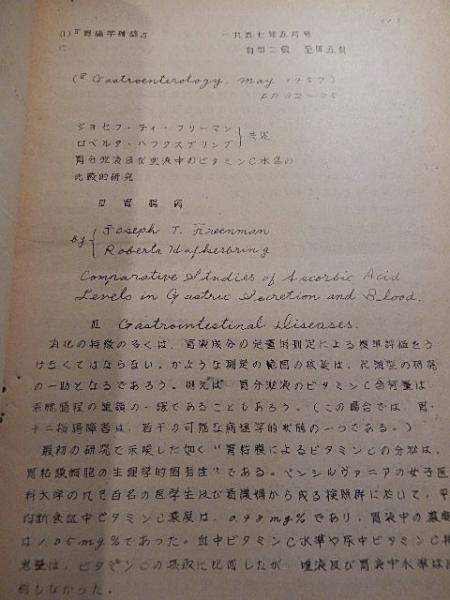 (1) 『胃腸学雑誌』 一九五七年五月号
自四二頁 至四五頁
("Gastroenterology, May 1957)
ジョセフ・ティ・フリーマン
ロベルタ・ハフクスブリング } 共著
胃分泌液及び血液中のビタミンC水準の
比較的研究
Ⅲ 胃腸病
by { Joseph T. Freeman
Roberta Hafkesbring
Comparative Studies of Ascorbic Acid
Levels in Gastric Secretion and Blood.
Ⅲ Gastrointestinal Diseases.
消化の特徴の多くは、胃液成分の定量的測定による標準評価をう
けなくてはならない。かような測定の範囲の拡張は、代謝型の研究
の一助となるであろう。例えば、胃分泌液のビタミンC含有量は、
系統過程の連鎖の一環であることもあろう。(この場合では、胃・
十二指腸障害は、若干の可能な病理学的状態の一つである。)
最初の研究で示唆した如く"胃粘膜によるビタミンCの分泌は、
胃粘膜細胞の生理学的固有性"である。ペンシルヴァニアの女子医
科大学の九十百名の医学生及び看護婦から成る検類群において、平
均断食血中ビタミンC濃度は、0.93mg%であり、胃液中の濃度
は1.05mg%であった。血中ビタミンC水準や尿中ビタミンC排
泄量は、ビタミンCの摂取に比例したが、唾液及び胃液中水準は比
例しなかった。